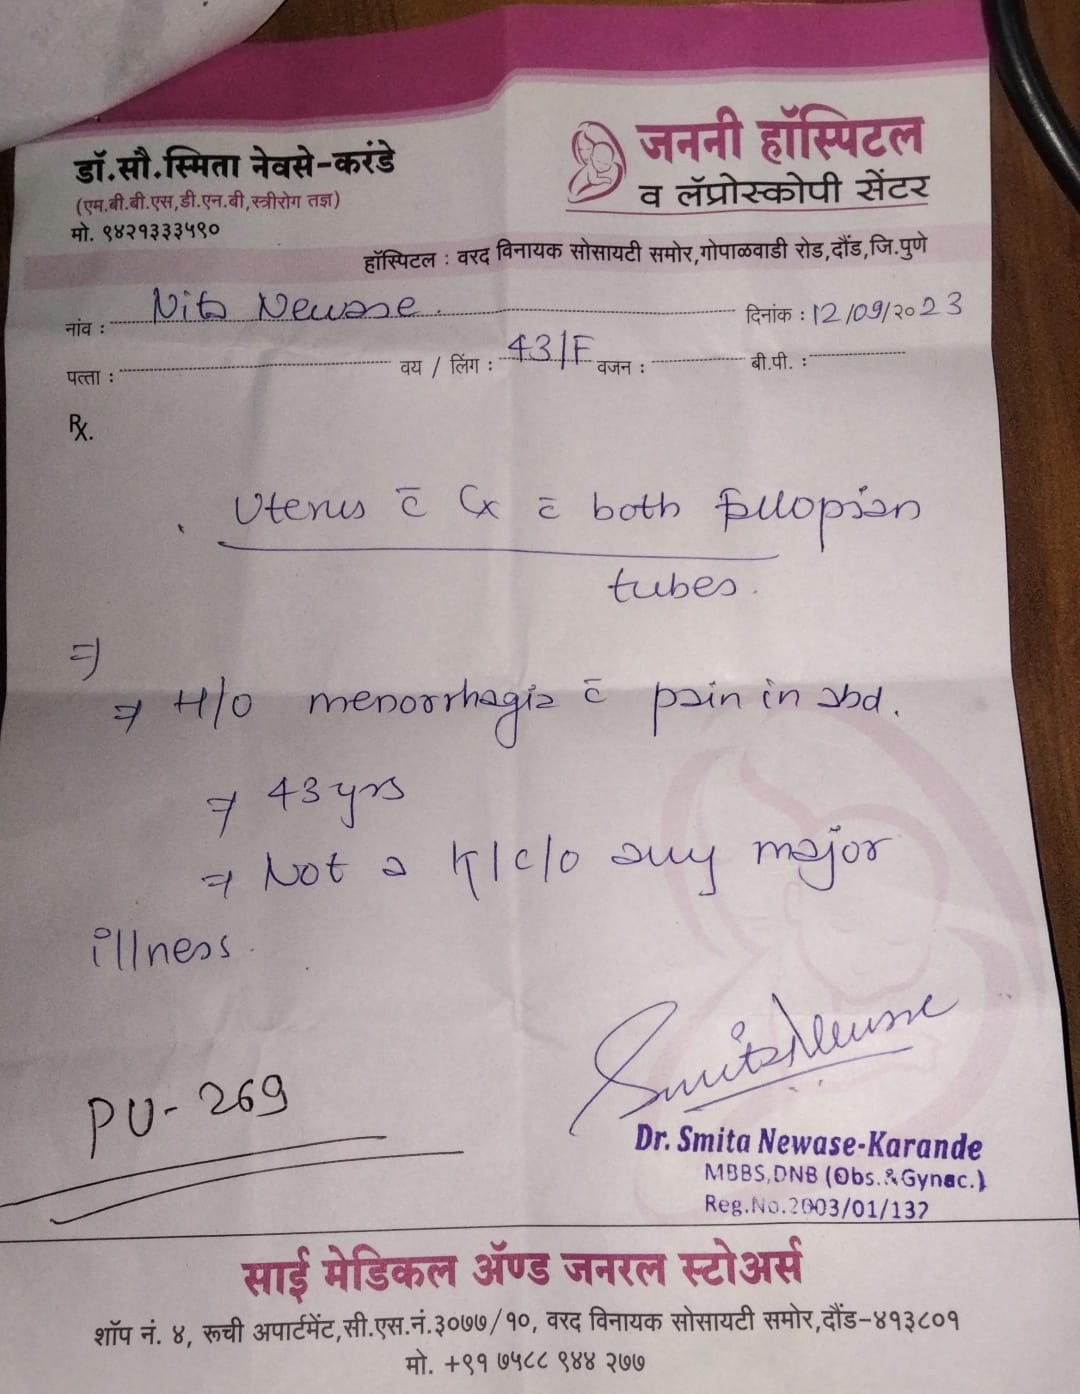 डॉ.सौ.स्मिता नेवसे-करंडे
(एम.बी.बी.एस,डी.एन.बी,स्त्रीरोग तज्ञ)
मो. ९४२१३३३५९०
जननी हॉस्पिटल
व लॅप्रोस्कोपी सेंटर
हॉस्पिटल : वरद विनायक सोसायटी समोर,गोपाळवाडी रोड,दौंड,जि.पुणे
नांव : Nita Newase. दिनांक : 12/09/२०23
पत्ता : वय / लिंग : 43/F वजन : बी.पी. :
Rx.
Uterus c̄ Cx c̄ both fallopian
tubes.
⇒
⇒ H/o menorrhagia c̄ pain in abd.
⇒ 43 yrs
⇒ Not a K/c/o any major
illness.
PU-269
Smita Newase
Dr. Smita Newase-Karande
MBBS,DNB (Obs.&Gynac.)
Reg.No.2003/01/137
साई मेडिकल ॲण्ड जनरल स्टोअर्स
शॉप नं. ४, रूची अपार्टमेंट,सी.एस.नं.३०७७/१०, वरद विनायक सोसायटी समोर,दौंड-४१३८०१
मो. +९१ ७५८८ ९४४ २७७